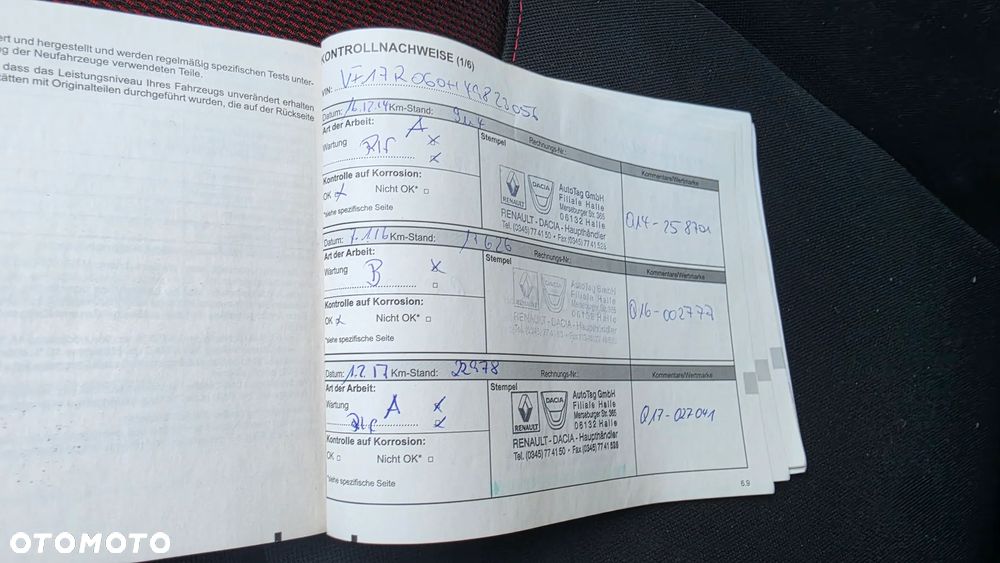 ert und hergestellt und werden regelmäßig spezifischen Tests unter-
g der Neufahrzeuge verwendeten Teile.
dass das Leistungsniveau Ihres Fahrzeugs unverändert erhalten
tätten mit Originalteilen durchgeführt wurden, die auf der Rückseite
KONTROLLNACHWEISE (1/6)
VIN:
Datum: 16.12.14 Km-Stand:
Rechnungs-Nr.:
Kommentare/Wertmarke
Art der Arbeit:
A
Stempel
Wartung
Kontrolle auf Korrosion:
OK Nicht OK* □
*siehe spezifische Seite
RENAULT
DACIA
AutoTag GmbH
Filiale Halle
Merseburger Str. 365
06132 Halle
RENAULT - DACIA - Haupthändler
Tel. (0345) 77 41 50 • Fax (0345) 77 41 528
Q14-258701
Datum: 7.1.16 Km-Stand: 11626
Rechnungs-Nr.:
Kommentare/Wertmarke
Art der Arbeit:
Stempel
Wartung
B
Kontrolle auf Korrosion:
OK Nicht OK* □
*siehe spezifische Seite
AutoTag GmbH
Filiale Halle
Merseburger Str. 365
06132 Halle
RENAULT - DACIA - Haupthändler
Q16-002777
Datum: 1.2.17 Km-Stand: 22978
Rechnungs-Nr.:
Kommentare/Wertmarke
Art der Arbeit:
Stempel
Wartung
A
Kontrolle auf Korrosion:
OK □ Nicht OK* □
*siehe spezifische Seite
RENAULT
DACIA
AutoTag GmbH
Filiale Halle
Merseburger Str. 365
06132 Halle
RENAULT - DACIA - Haupthändler
Tel. (0345) 77 41 50 • Fax (0345) 77 41 528
Q17-027041
6.9
OTOMOTO